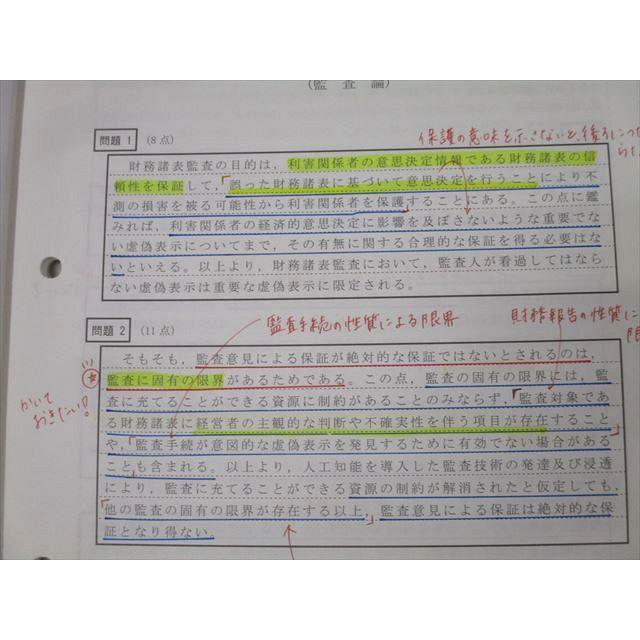 (監 査 論)
保護の意味を示さないと、後引につ
問題 1 (8点)
財務諸表監査の目的は，利害関係者の意思決定情報である財務諸表の信
頼性を保証して，「誤った財務諸表に基づいて意思決定を行うことにより不
測の損害を被る可能性から利害関係者を保護」することにある。この点に鑑
みれば，利害関係者の経済的意思決定に影響を及ぼさないような重要でな
い虚偽表示についてまで，その有無に関する合理的な保証を得る必要はな
いといえる。以上より，財務諸表監査において，監査人が看過してはなら
ない虚偽表示は重要な虚偽表示に限定される。
問題 2 (11点)
監査手続の性質による限界
財務報告の性質に
そもそも，監査意見による保証が絶対的な保証ではないとされるのは，
監査に固有の限界があるためである。この点，監査の固有の限界には，監
査に充てることができる資源に制約があることのみならず，「監査対象であ
る財務諸表に経営者の主観的な判断や不確実性を伴う項目が存在すること」
や，「監査手続が意図的な虚偽表示を発見するために有効でない場合がある
こと」も含まれる。以上より，人工知能を導入した監査技術の発達及び浸透
により，監査に充てることができる資源の制約が解消されたと仮定しても，
「他の監査の固有の限界が存在する以上，」監査意見による保証は絶対的な保
証となり得ない。
かいて
おきたい!